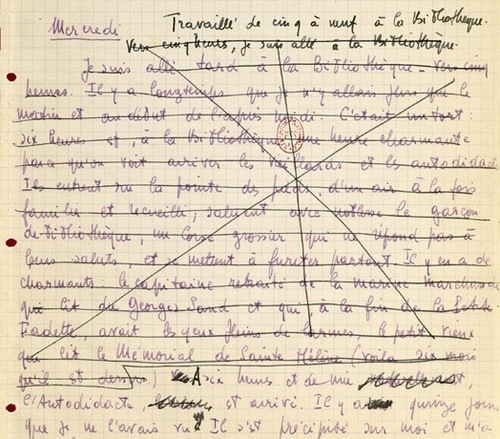 Mercredi
Travaillé de cinq à neuf à la Bibliothèque.
Vers cinq heures, je suis allé à la Bibliothèque.
Je suis allé tard à la Bibliothèque - vers cinq
heures. Il y a longtemps que je n'y allais plus que le
matin et au début de l'après midi. C'était un tort :
six heures est, à la Bibliothèque, une heure charmante
parce qu'on voit arriver les vieillards et les autodidactes
Ils entrent sur la pointe des pieds, d'un air à la fois
familier et recueilli, saluent avec noblesse le garçon
de Bibliothèque, un Corse grossier qui ne répond pas à
leurs saluts, et se mettent à fureter partout. Il y en a de
charmants : le capitaine retraité de la marine marchande
qui lit du Georges Sand et qui à la fin de la Petite
Fadette, avait les yeux pleins de larmes. le petit vieux
qui lit le Mémorial de Sainte Hélène (voilà six mois
qu'il est dessus.) A six heures et demie
l'Autodidacte, est arrivé. Il y a quinze jours
que je ne l'avais vu. Il s'est précipité sur moi et m'a